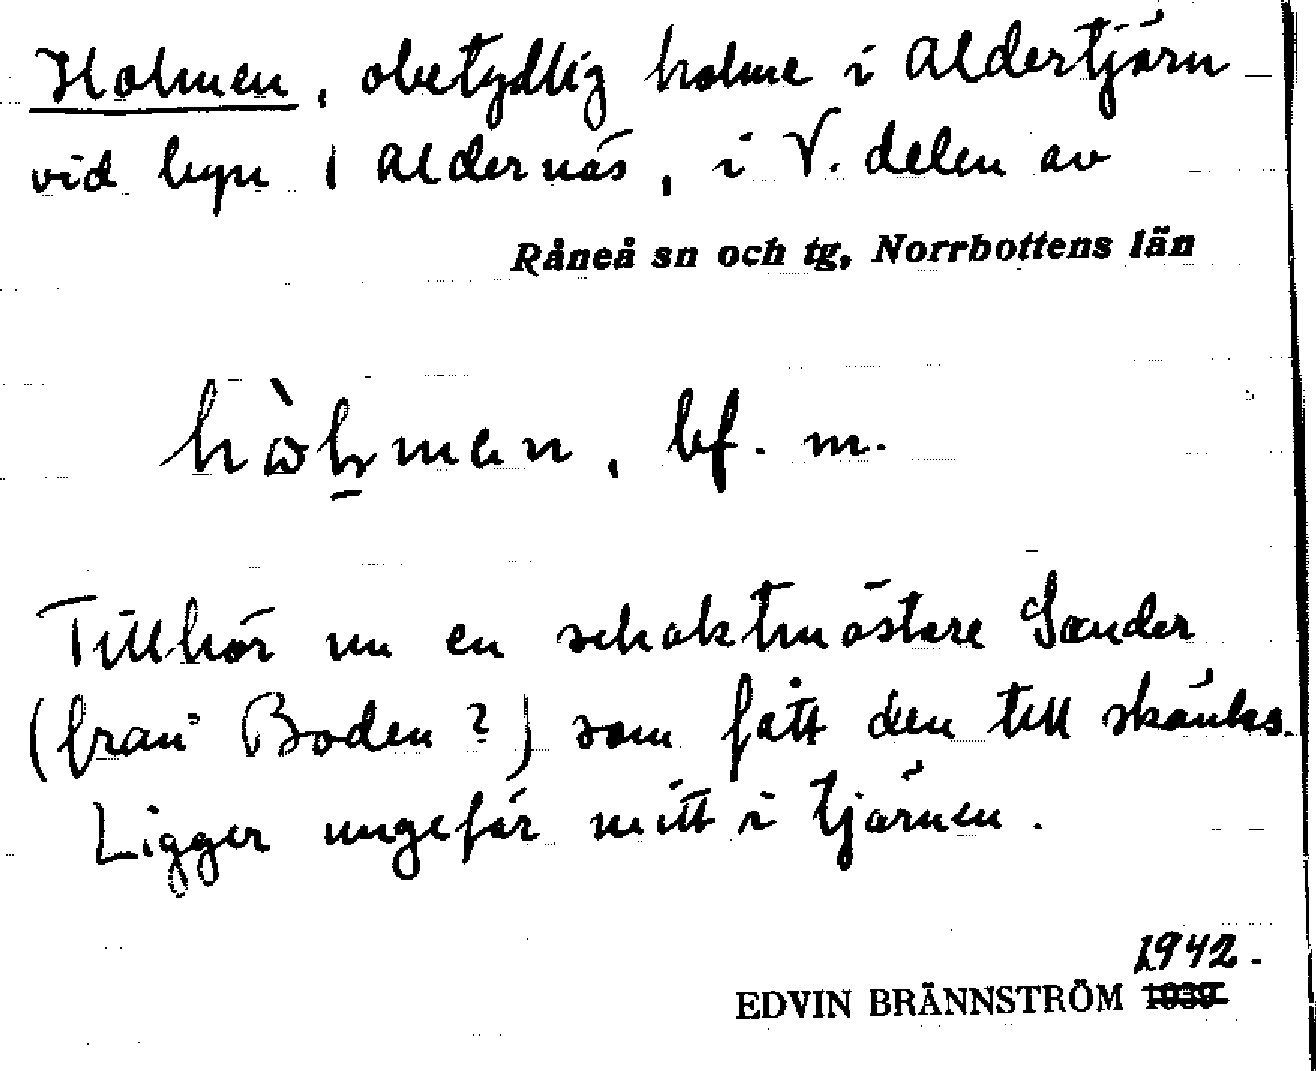 Holmen, obetydlig holme i Aldertjärn
vid byn Aldernäs, i V. delen av
Råneå sn och tg, Norrbottens län
bf. m.
Tillhör nu en schaktmästare Sander
(från Boden?) som fått den till skänks.
Ligger ungefär mitt i tjärnen.
1942.
EDVIN BRÄNNSTRÖM 1939